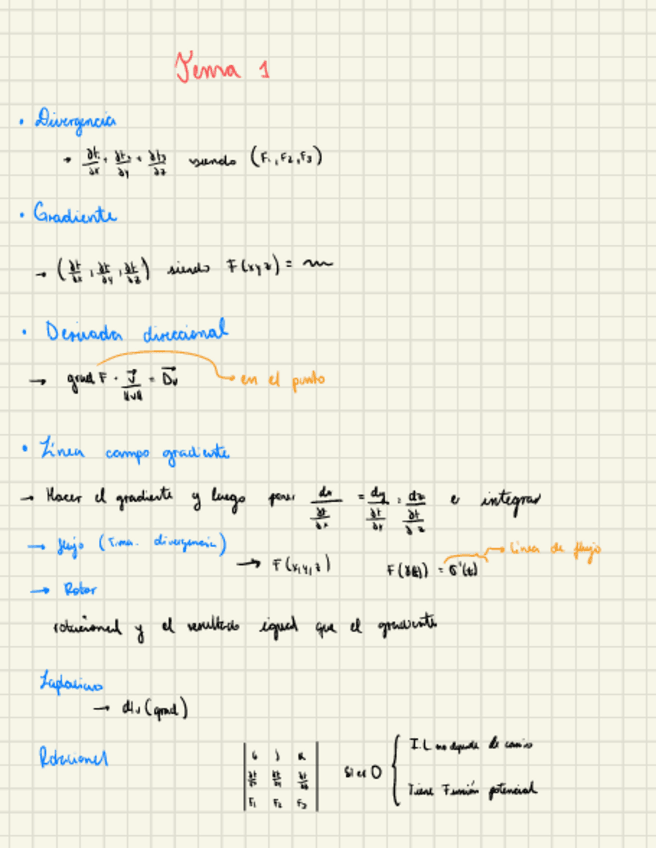 Tema 1
• Divergencia
→ ∂F₁/∂x + ∂F₂/∂y + ∂F₃/∂z siendo (F₁, F₂, F₃)
• Gradiente
→ (∂F/∂x, ∂F/∂y, ∂F/∂z) siendo F(xyz) =
• Derivada direccional
→ grad F · v⃗/||v|| = D⃗ᵥ → en el punto
• Línea campo gradiente
→ Hacer el gradiente y luego poner dx/(∂F/∂x) = dy/(∂F/∂y) = dz/(∂F/∂z) e integrar
→ flujo (Tma. divergencia)
→ F(x,y,z) F(σ(t)) = σ'(t) → Línea de flujo
→ Rotor
rotacional y el resultado igual que el gradiente
Laplaciano
→ div(grad)
Rotacional
| i j k |
| ∂F/∂x ∂F/∂y ∂F/∂z | si es 0 { I.L no depende de camino
| F₁ F₂ F₃ | Tiene Función potencial